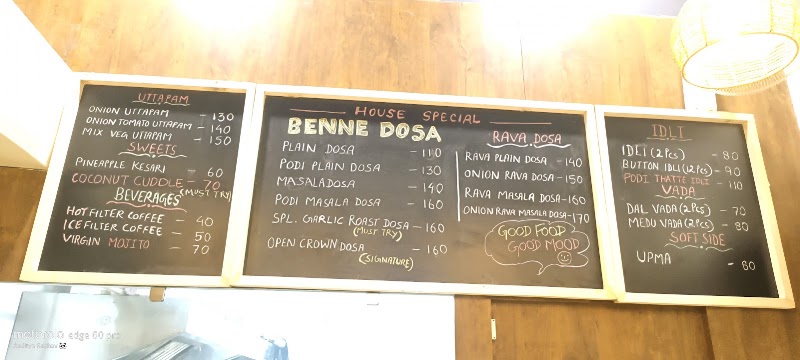 UTTAPAM
ONION UTTAPAM - 130
ONION TOMATO UTTAPAM - 140
MIX VEG UTTAPAM - 150
SWEETS
PINEAPPLE KESARI - 60
COCONUT CUDDLE - 70
(MUST TRY)
BEVERAGES
HOT FILTER COFFEE - 40
ICE FILTER COFFEE - 50
VIRGIN MOJITO - 70
HOUSE SPECIAL
BENNE DOSA
PLAIN DOSA - 110
PODI PLAIN DOSA - 130
MASALA DOSA - 140
PODI MASALA DOSA - 160
SPL. GARLIC ROAST DOSA - 160
(MUST TRY)
OPEN CROWN DOSA - 160
(SIGNATURE)
RAVA DOSA
RAVA PLAIN DOSA - 140
ONION RAVA DOSA - 150
RAVA MASALA DOSA - 160
ONION RAVA MASALA DOSA - 170
GOOD FOOD
GOOD MOOD
IDLI
IDLI (2 Pcs) - 80
BUTTON IDLI (12 Pcs) - 90
PODI THATTE IDLI - 110
VADA
DAL VADA (2 Pcs) - 70
MEDU VADA (2 Pcs) - 80
SOFT SIDE
UPMA - 80
motorola edge 60 pro